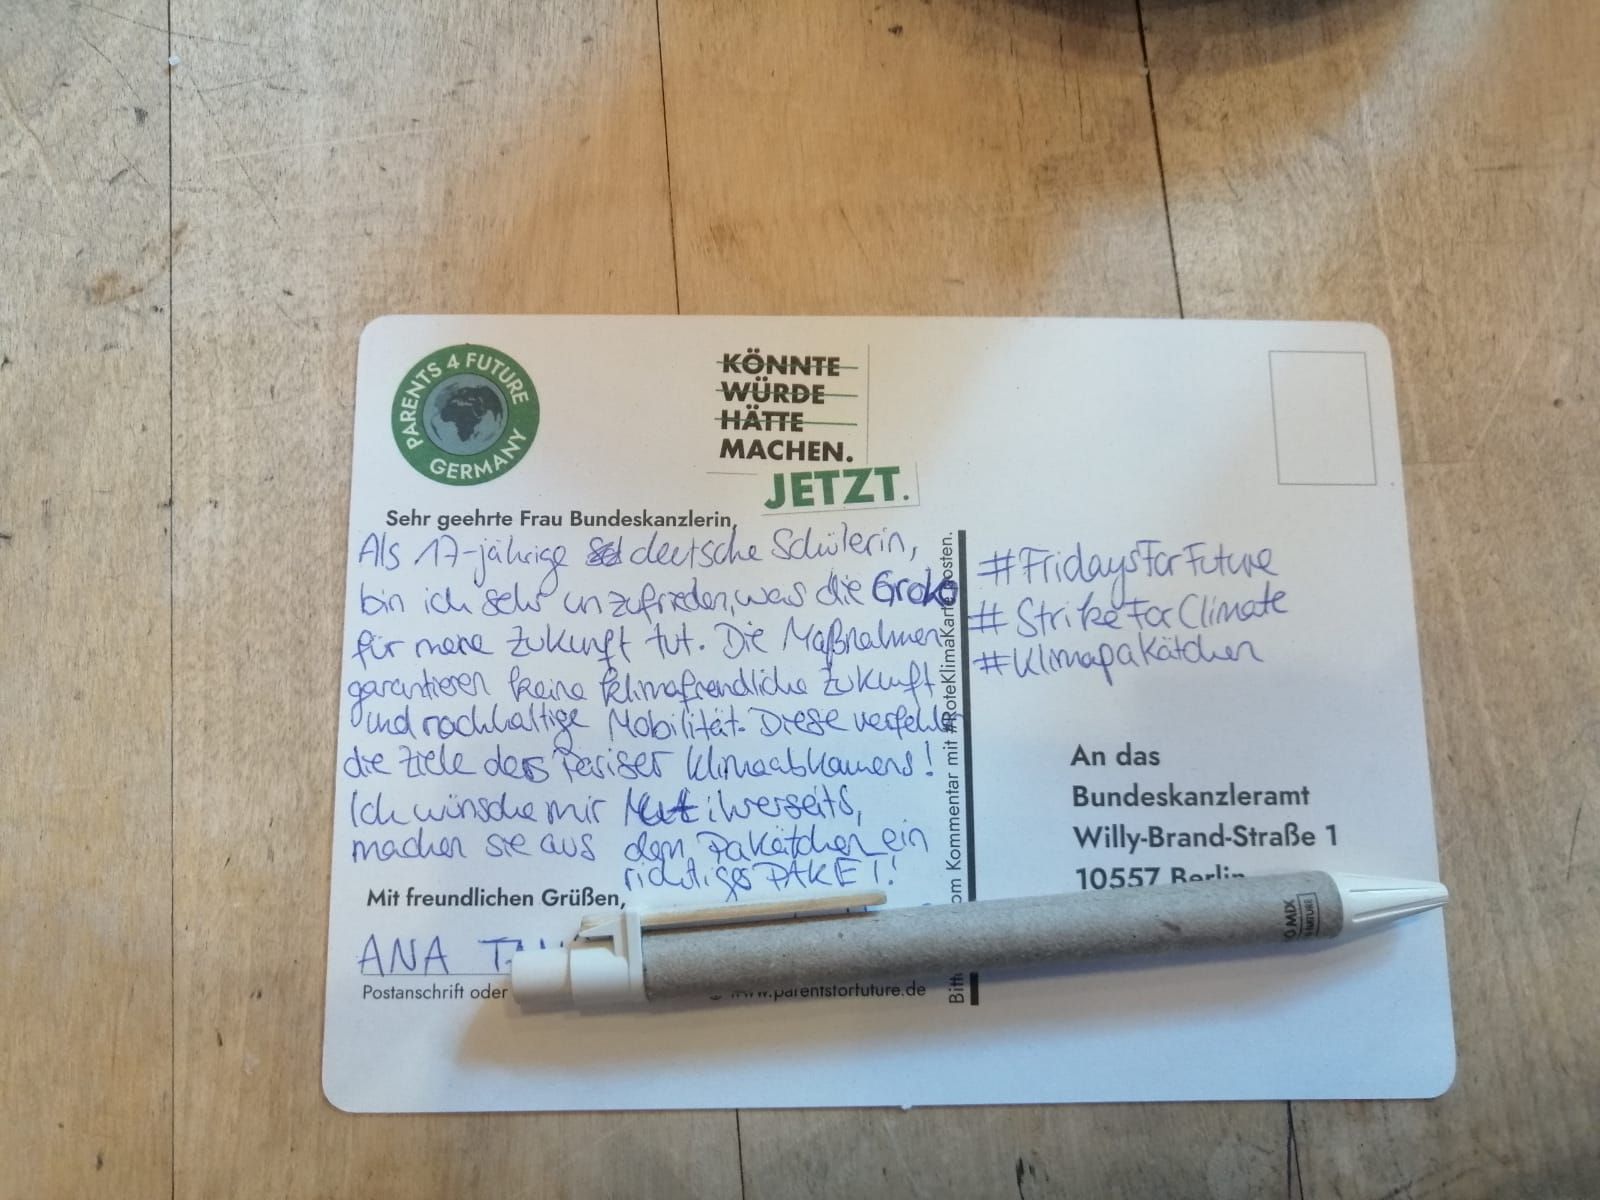 PARENTS 4 FUTURE
GERMANY
KÖNNTE
WÜRDE
HÄTTE
MACHEN.
JETZT.
Sehr geehrte Frau Bundeskanzlerin,
Als 17-jährige deutsche Schülerin,
bin ich sehr unzufrieden, was die Groko
für meine Zukunft tut. Die Maßnahmen
garantieren keine klimafreundliche Zukunft
und nachhaltige Mobilität. Diese verfehlen
die Ziele des Pariser Klimaabkomens!
Ich wünsche mir Mut ihrerseits,
machen sie aus dem Pakätchen ein
richtiges PAKET!
Mit freundlichen Grüßen,
ANA
Postanschrift oder
www.parentsforfuture.de
om Kommentar mit #RoteKlimaKarte posten.
#FridaysForFuture
#StrikeForClimate
#Klimapakätchen
An das
Bundeskanzleramt
Willy-Brand-Straße 1
10557 Berlin